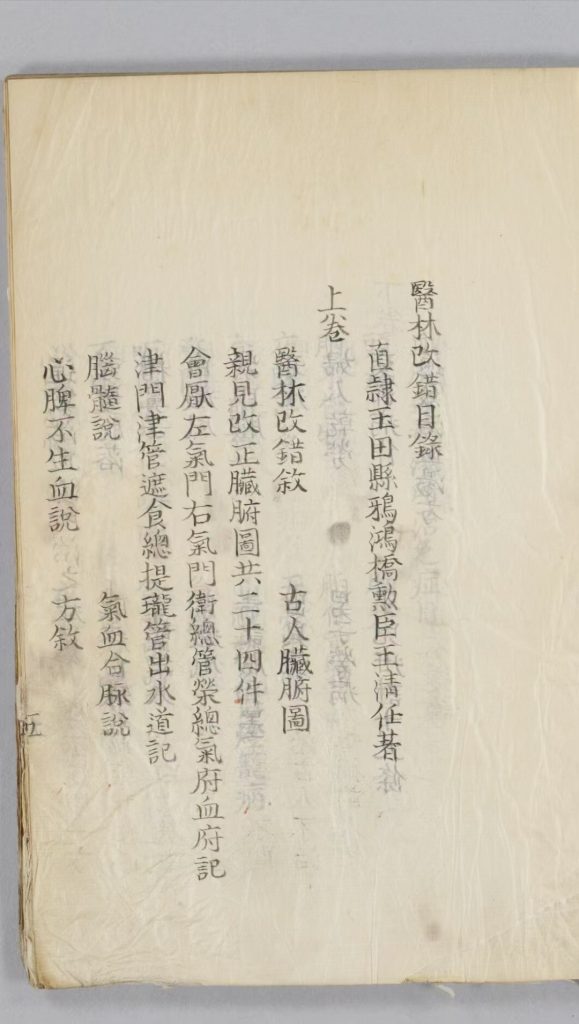 醫林改錯目錄
直隸玉田縣鴉鴻橋勲臣王清任著
上卷
醫林改錯敘 古人臟腑圖
親見改正臟腑圖共二十四件
會厭左氣門右氣門衛總管榮總氣府血府記
津門津管遮食總提瓏管出水道記
腦髓說 氣血合脉說
心脾不生血說 方敘
五